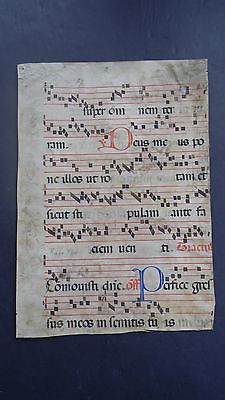 super om nem ter
ram. Deus me us po
ne illos ut ro tam et
sicut sti pulam ante fa
ciem uen ti. Tractus
Comouisti dñe. off Perfice gres
sus meos in semitis tu is